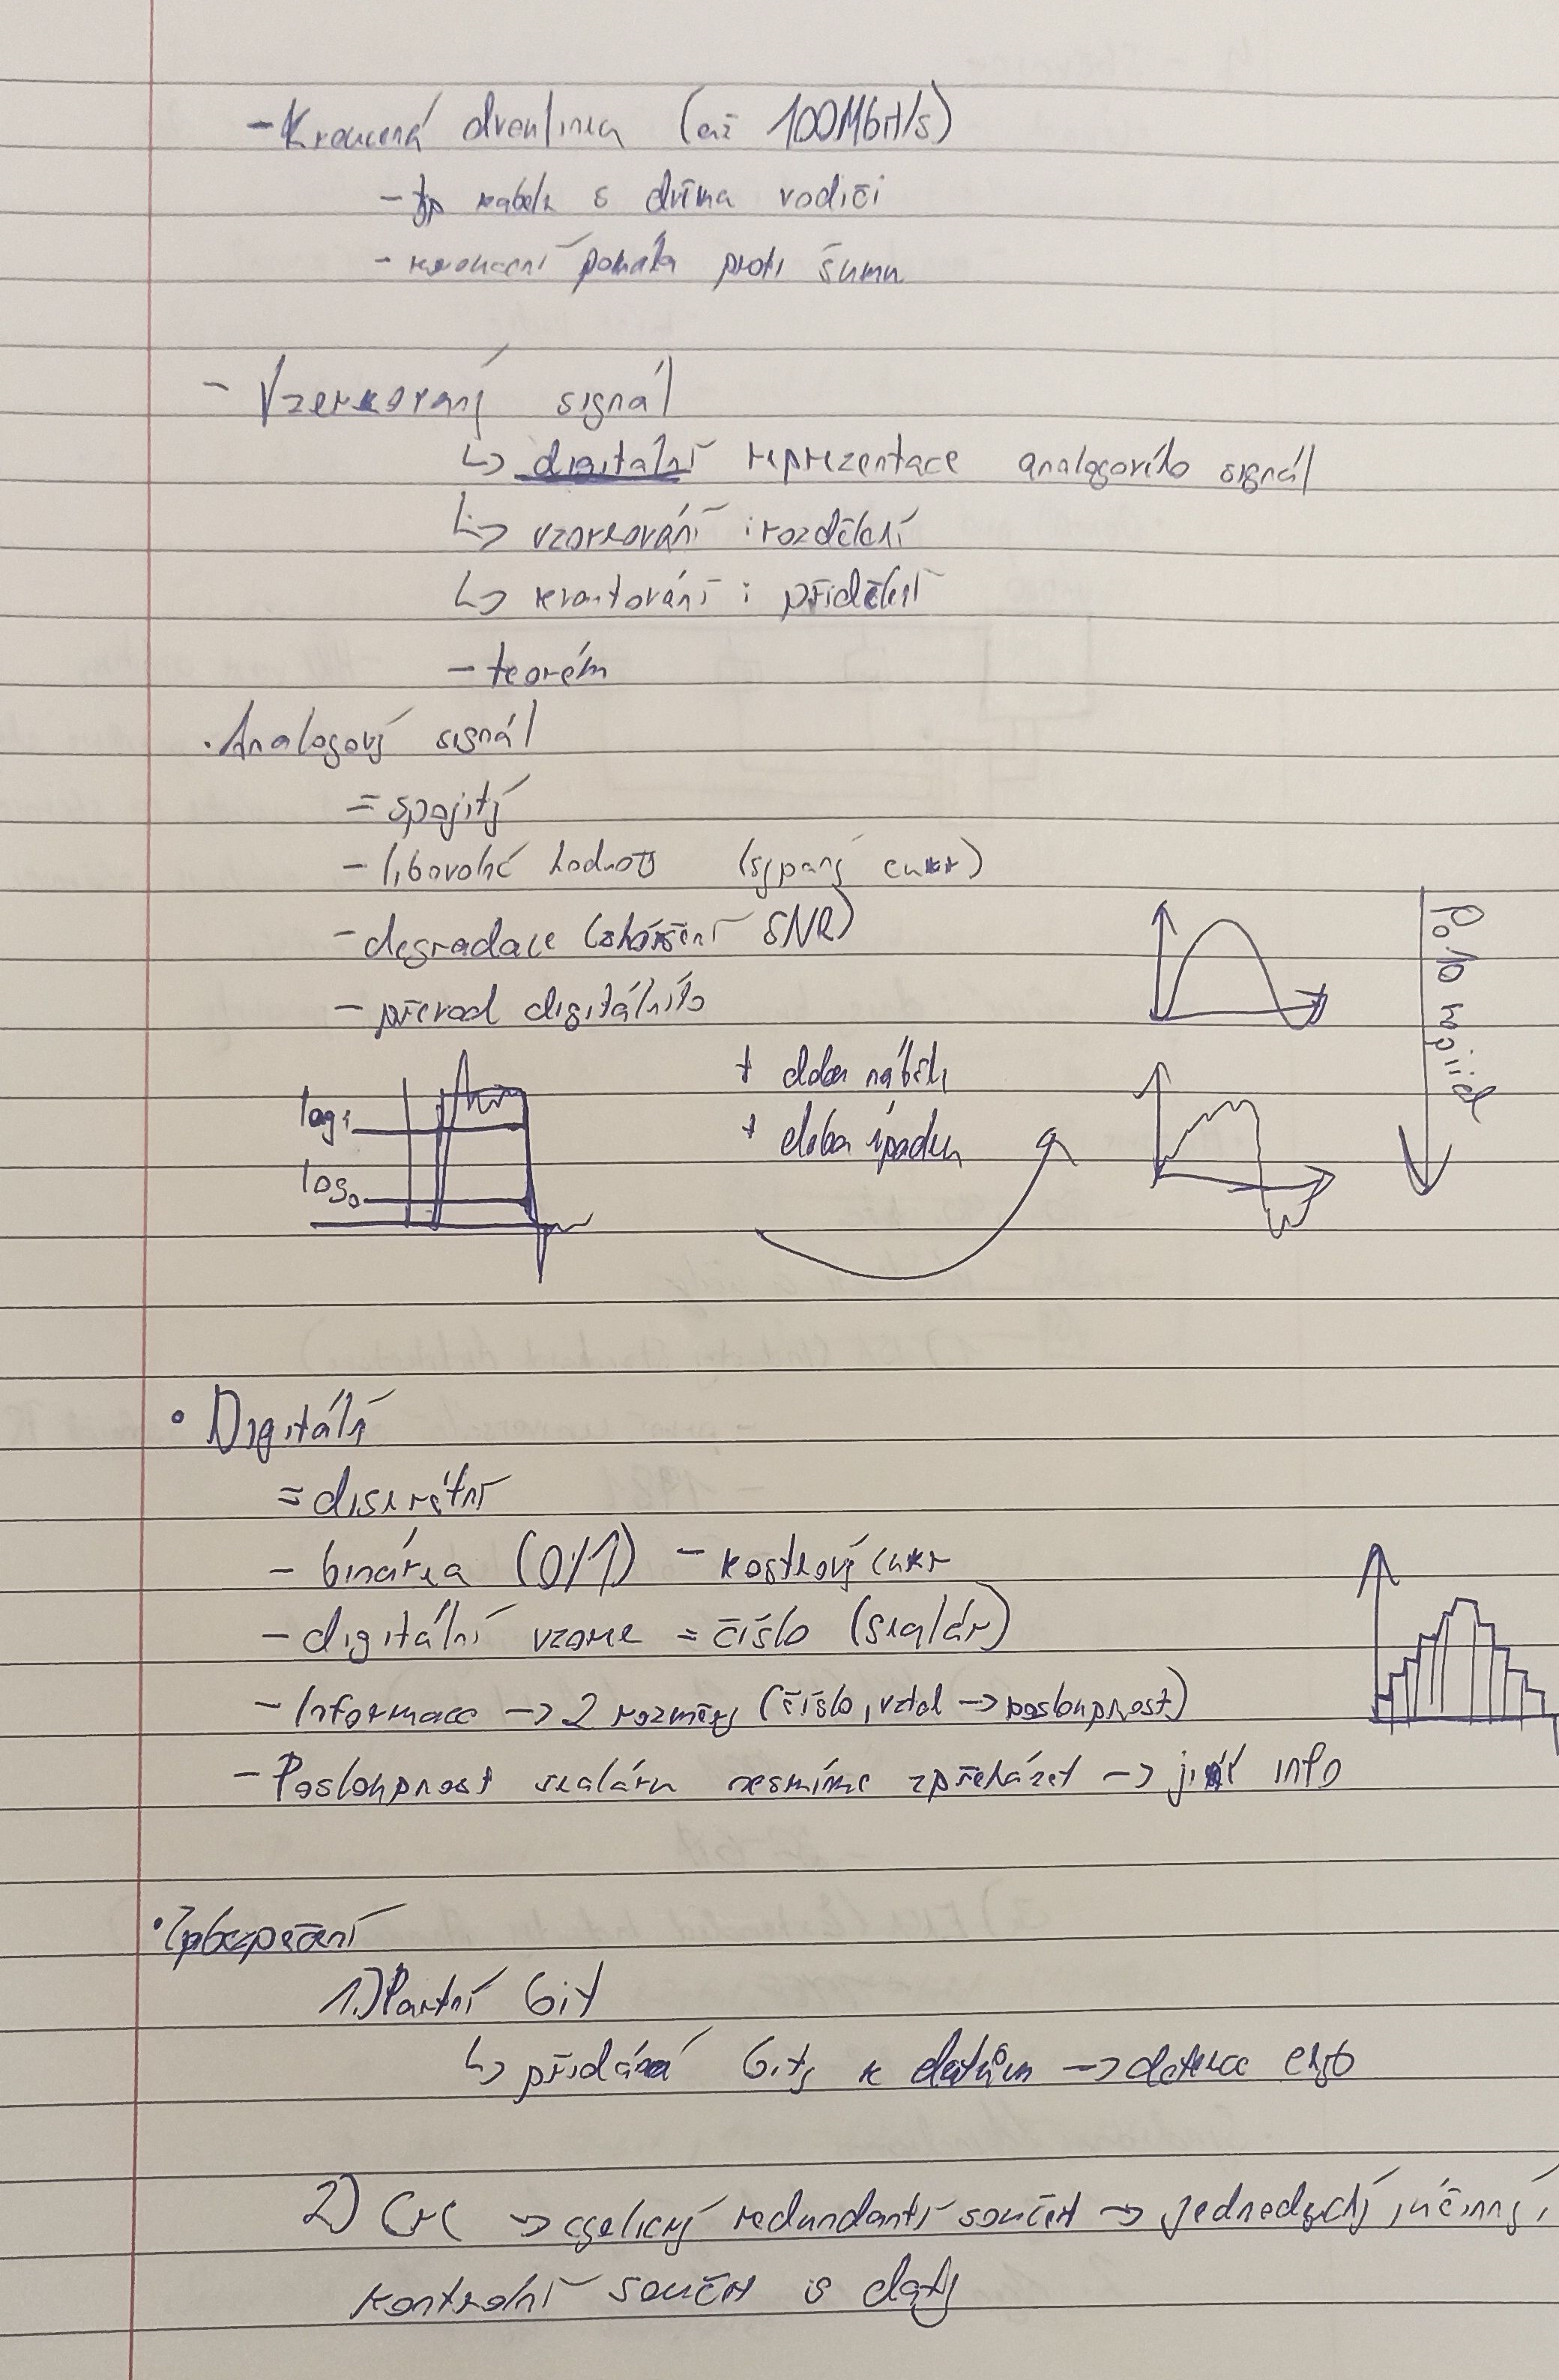 - Kroucená dvoulinka (až 100Mbit/s)
- typ kabelu s dvěma vodiči
- kroucení pomáhá proti šumu
- Vzorkovaný signál
↳ digitální reprezentace analogového signál
↳ vzorkování : rozdělení
↳ kvantování : přidělení
- teorém
· Analogový signál
= spojitý
- libovolné hodnoty (sypaný cukr)
- degradace (zhoršení SNR)
- převod digitálního
+ doba náběhu
+ doba úpadku
log1
log0
Po 10 kopiích
• Digitální
= diskrétní
- binárka (0/1) - kostkový cukr
- digitální vzorek = číslo (skalár)
- Informace -> 2 rozměry (číslo, vztah -> posloupnost)
- Posloupnost skalárů nesmíme zpřeházet -> jiné info
• Zabezpečení
1.) Paritní bit
↳ přidává bity k datům -> detekce chyb
2) CRC -> cyklický redundantní součet -> jednoduchý, účinný,
kontrolní součet s daty